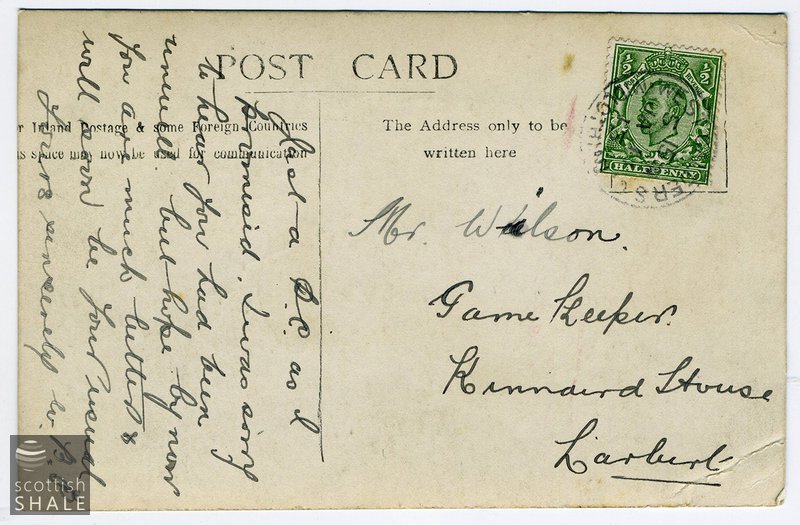 POST CARD
r Inland Postage & some Foreign Countries
is space may now be used for communication
The Address only to be
written here
½ ½
POSTAGE REVENUE
HALFPENNY
Just a P.C. as I
promised. I was sorry
to hear you had been
unwell. but hope by now
you are much better &
will soon be your usual
Yours sincerely W. B.
Mr. Wilson.
Game Keeper.
Kinnaird House
Larbert
scottish
SHALE